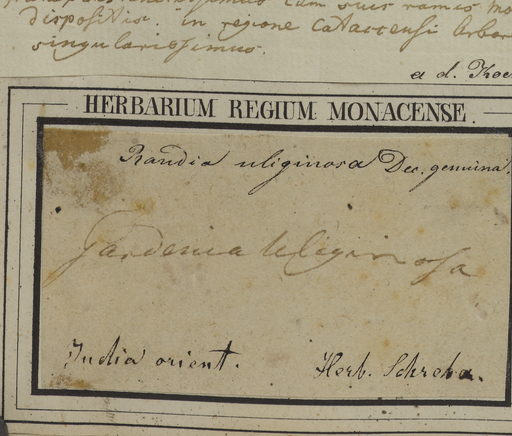 cum suis ramis
dispositis. in regione Catarcensi Arbor
singularissimus.
a d. Koe
HERBARIUM REGIUM MONACENSE.
Randia uliginosa Dec. genuina.
Gardenia Uliginosa
India orient. Herb. Schreb.